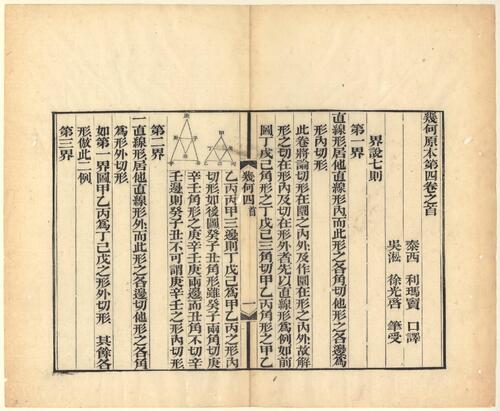 幾何原本第四卷之首
泰西 利瑪竇 口譯
吳淞 徐光啓 筆受
界說七則
第一界
直線形居他直線形內而此形之各角切他形之各邊為
形內切形
此卷將論切形在圜之內外及作圜在形之內外故解
形之切在形內及切在形外者先以直線形為例如前
圖丁戊己角形之丁戊己三角切甲乙丙角形之甲乙
幾何四首 一
乙丙丙甲三邊則丁戊己為甲乙丙之形內
切形如後圖癸子丑角形雖癸子兩角切庚
辛壬角形之庚辛壬庚兩邊而丑角不切辛
壬邊則癸子丑不可謂庚辛壬之形內切形
第二界
一直線形居他直線形外而此形之各邊切他形之各角
為形外切形
如第一界圖甲乙丙為丁己戊之形外切形 其餘各
形倣此二例
第三界